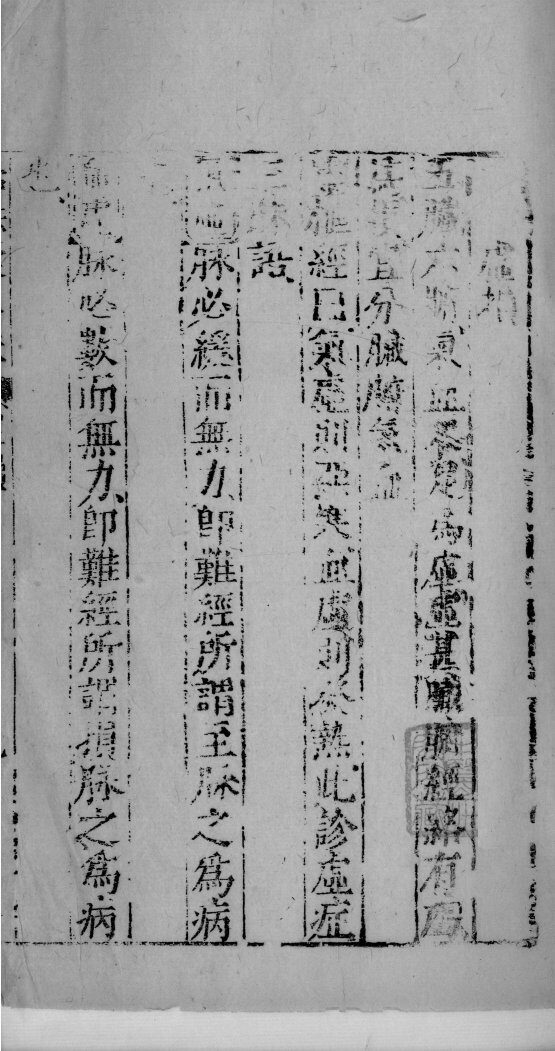 虛損
五臟六腑氣血不足為虛虛甚臟腑經絡有
宜分臟腑氣血
樞經曰氣虛則發寒血虛則發熱此診虛症
語
脉必緩而無力即難經所謂至脉之爲病
脉必數而無力即難經所謂損脉之爲病
也